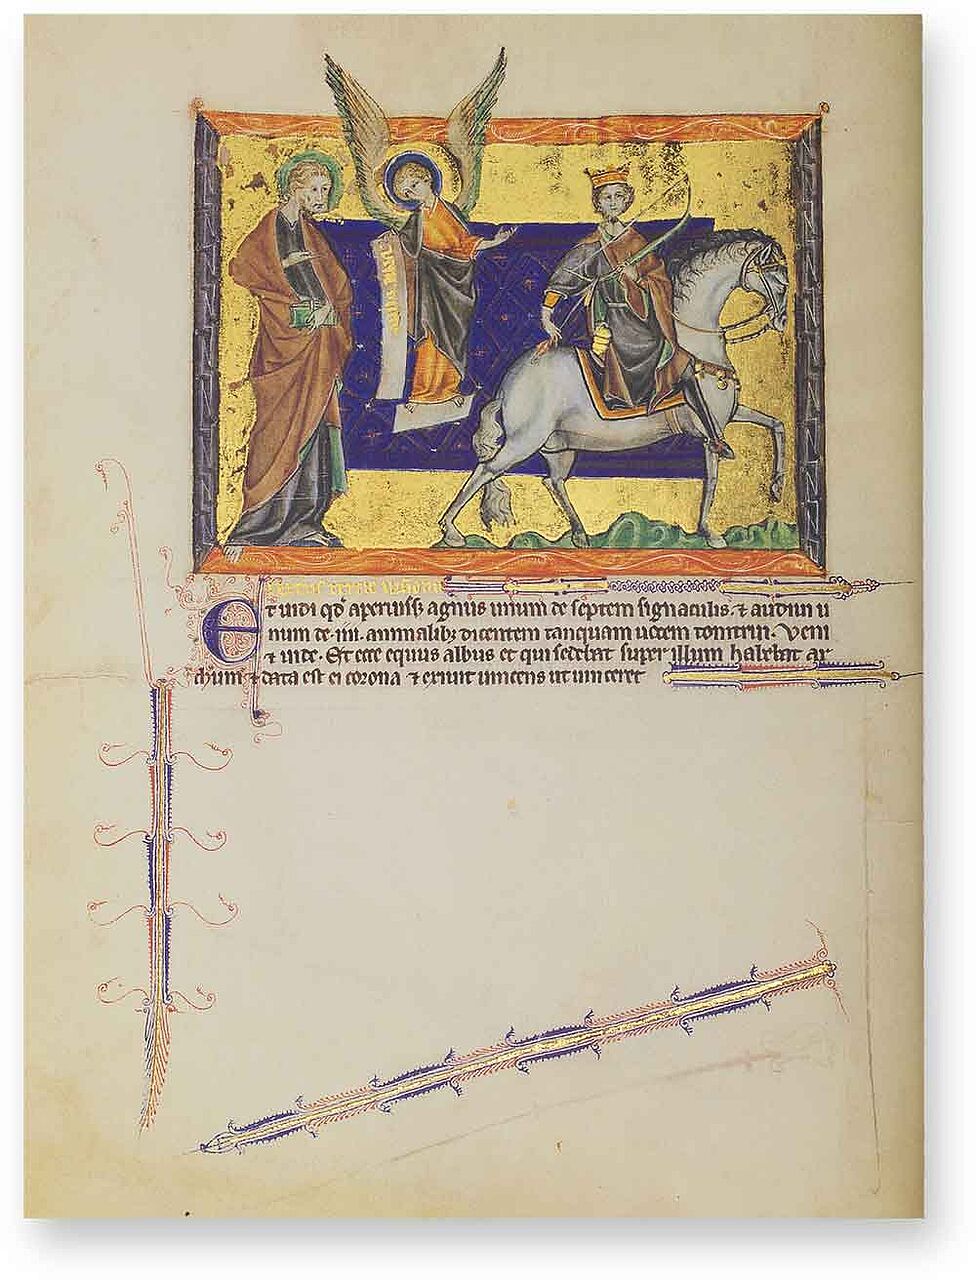 Et uidi qđ aperuiss; agnus unum de septem signaculis. ⁊ audiui u
num de .iiii. animalib; dicentem tanquam uocem tonitrui. Veni
⁊ uide. Et ecce equus albus et qui sedebat super illum habebat ar
chum ⁊ data est ei corona ⁊ exiuit uincens ut uinceret